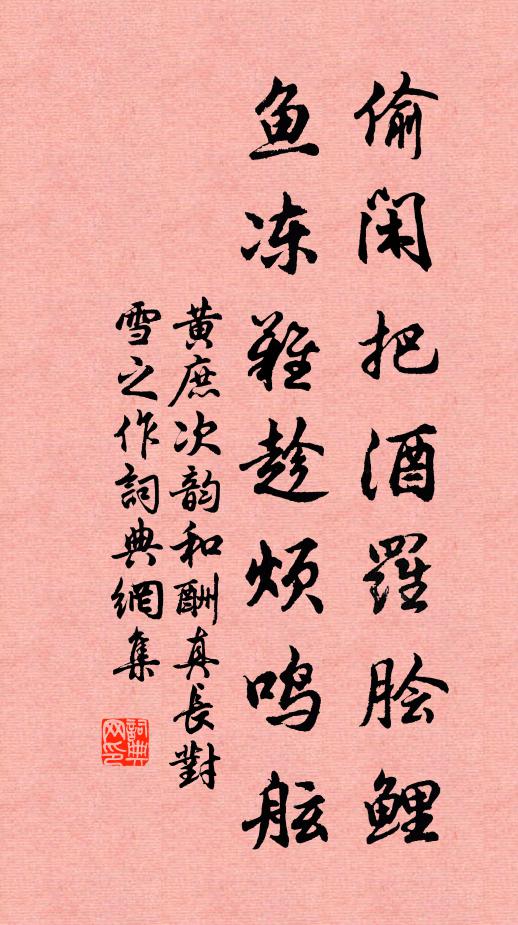 偷闲把酒羅脍鲤
鱼冻難趁烦鸣舷
黄庶次韵和酬真長對
雪之作詞典網集
詞典
网印